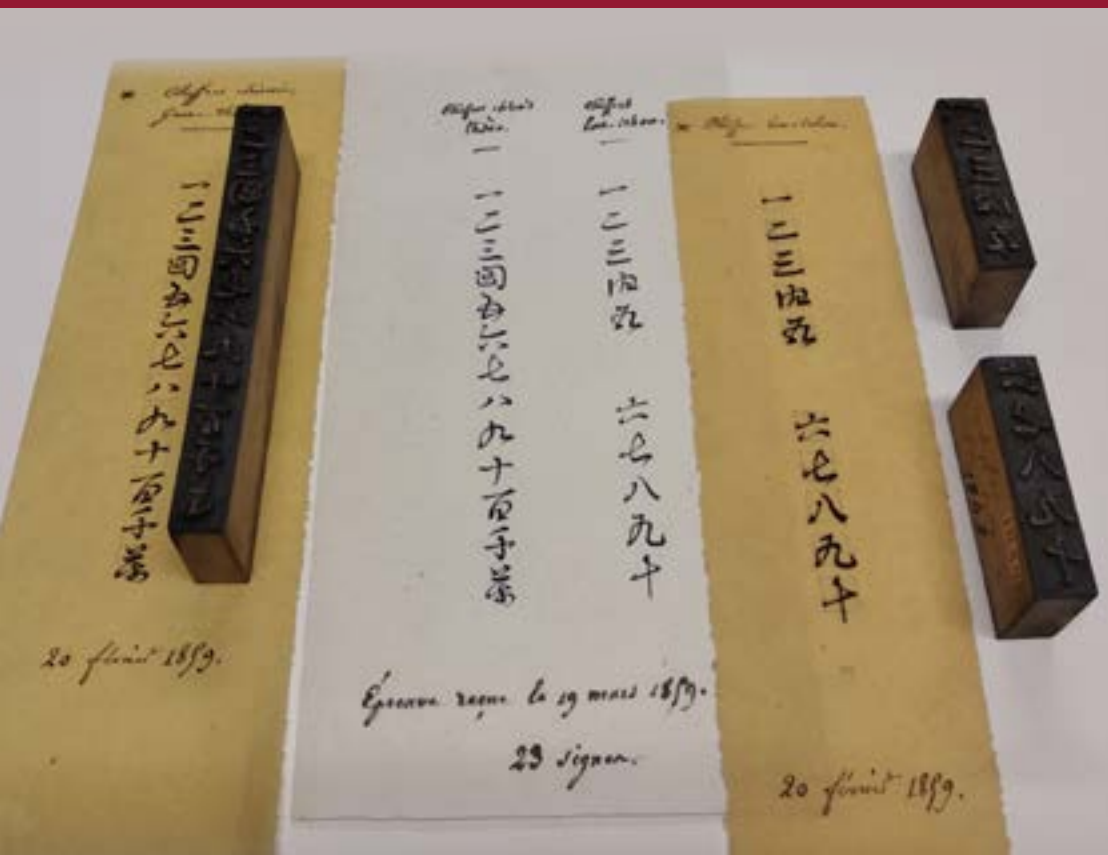 Chiffres chinois,
一二三四五六七八九十百千萬
20 février 1859.
Chiffres chinois
thsào.
一
一二三四五六七八九十百千萬
Chiffres
Lou-tchou.
一
一二三四五
六七八九十
Épreuve reçue le 19 mars 1859.
23 signes.
Chiffres Lou-tchou.
一二三四五
六七八九十
20 février 1859.